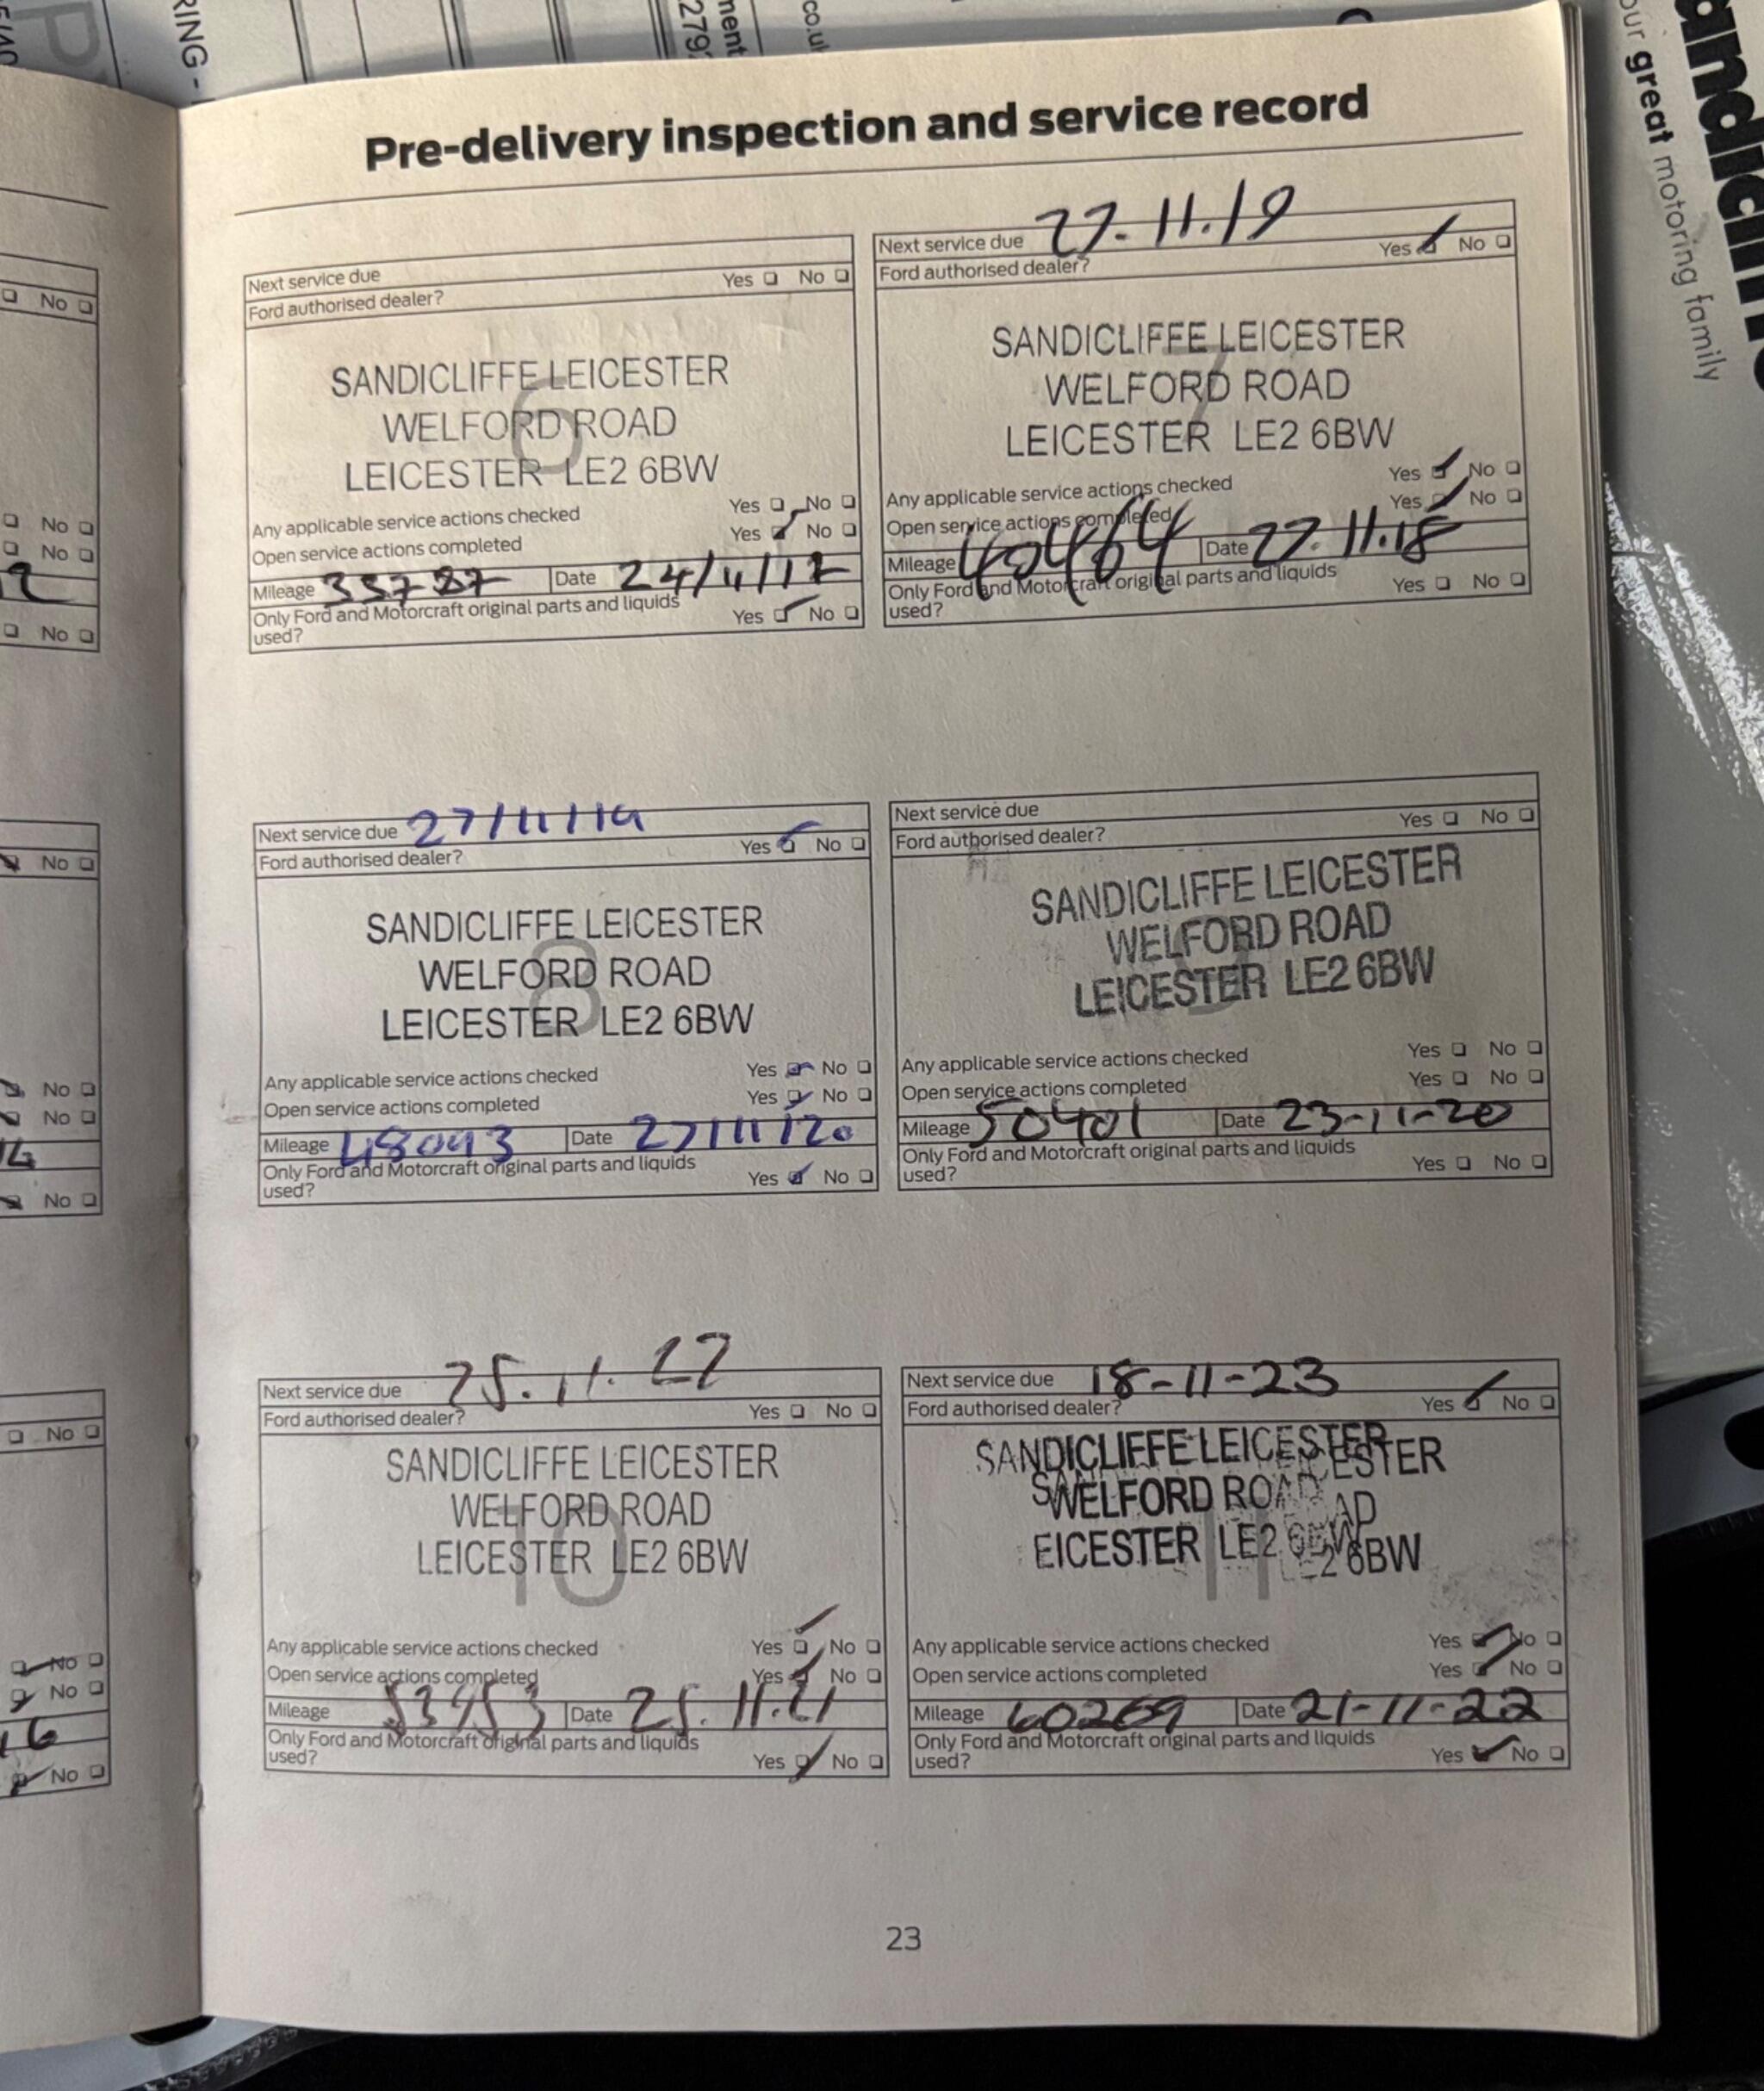 RING -
279
ment
co.uk
our great motoring family
Pre-delivery inspection and service record
Next service due
Ford authorised dealer? Yes No
6
SANDICLIFFE LEICESTER
WELFORD ROAD
LEICESTER LE2 6BW
Any applicable service actions checked Yes No
Open service actions completed Yes No
Mileage 35787 Date 24/11/17
Only Ford and Motorcraft original parts and liquids
used? Yes No
Next service due 27.11.19
Ford authorised dealer? Yes No
7
SANDICLIFFE LEICESTER
WELFORD ROAD
LEICESTER LE2 6BW
Any applicable service actions checked Yes No
Open service actions completed Yes No
Mileage 40464 Date 27.11.18
Only Ford and Motorcraft original parts and liquids
used? Yes No
Next service due 27/11/19
Ford authorised dealer? Yes No
8
SANDICLIFFE LEICESTER
WELFORD ROAD
LEICESTER LE2 6BW
Any applicable service actions checked Yes No
Open service actions completed Yes No
Mileage 48093 Date 27/11/20
Only Ford and Motorcraft original parts and liquids
used? Yes No
Next service due
Ford authorised dealer? Yes No
9
SANDICLIFFE LEICESTER
WELFORD ROAD
LEICESTER LE2 6BW
Any applicable service actions checked Yes No
Open service actions completed Yes No
Mileage 50401 Date 23-11-20
Only Ford and Motorcraft original parts and liquids
used? Yes No
Next service due 25.11.22
Ford authorised dealer? Yes No
10
SANDICLIFFE LEICESTER
WELFORD ROAD
LEICESTER LE2 6BW
Any applicable service actions checked Yes No
Open service actions completed Yes No
Mileage 53953 Date 25.11.21
Only Ford and Motorcraft original parts and liquids
used? Yes No
Next service due 18-11-23
Ford authorised dealer? Yes No
11
SANDICLIFFE LEICESTER
WELFORD ROAD
EICESTER LE2 6BW
Any applicable service actions checked Yes No
Open service actions completed Yes No
Mileage 60269 Date 21-11-22
Only Ford and Motorcraft original parts and liquids
used? Yes No
23
No
No
No
No
No
No
No
No
No
No
No
16
No